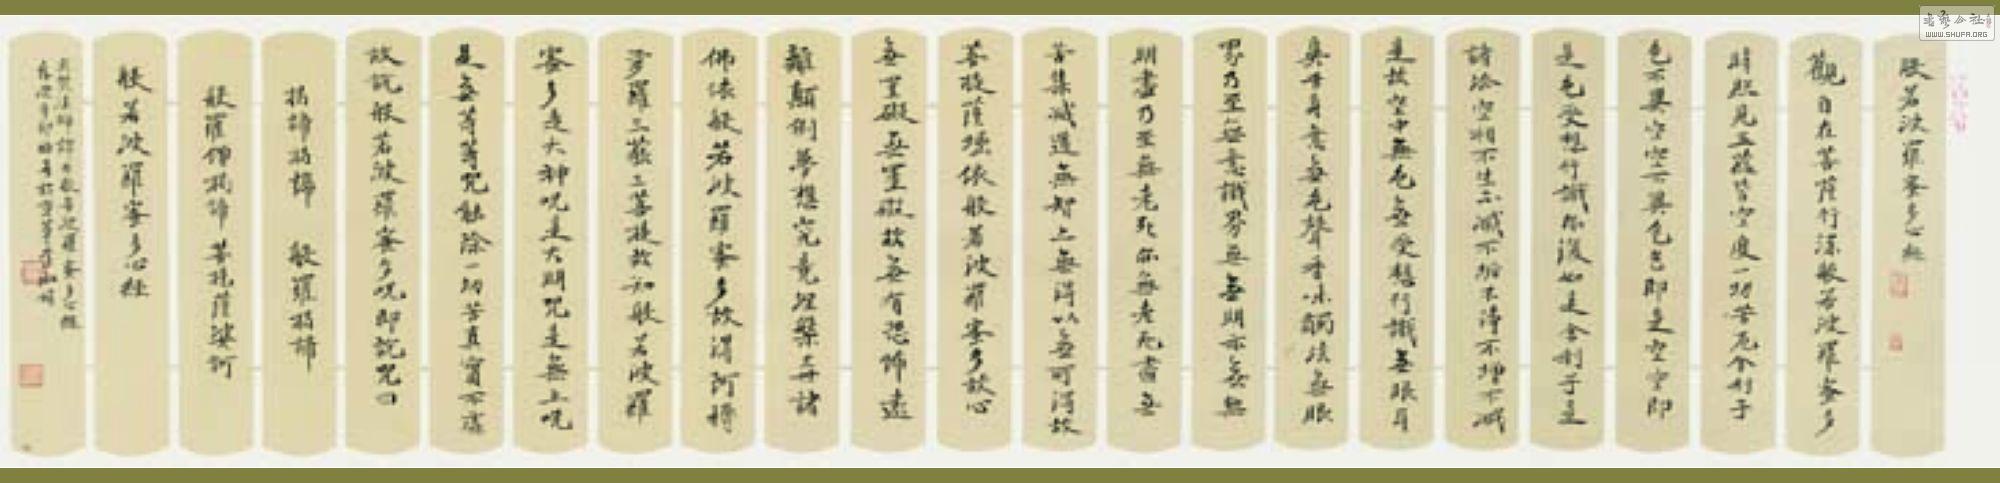 般若波羅蜜多心經
觀自在菩薩行深般若波羅蜜多
時照見五蘊皆空度一切苦厄舍利子
色不異空空不異色色即是空空即
是色受想行識亦復如是舍利子是
諸法空相不生不滅不垢不淨不增不減
是故空中無色無受想行識無眼耳
鼻舌身意無色聲香味觸法無眼
界乃至無意識界無無明亦無無
明盡乃至無老死亦無老死盡無
苦集滅道無智亦無得以無所得故
菩提薩埵依般若波羅蜜多故心
無罣礙無罣礙故無有恐怖遠
離顛倒夢想究竟涅槃三世諸
佛依般若波羅蜜多故得阿耨
多羅三藐三菩提故知般若波羅
蜜多是大神咒是大明咒是無上咒
是無等等咒能除一切苦真實不虛
故說般若波羅蜜多咒即說咒曰
揭諦揭諦 般羅揭諦
般羅僧揭諦 菩提薩婆訶
般若波羅蜜多心經
WWW.SHUFA.ORG